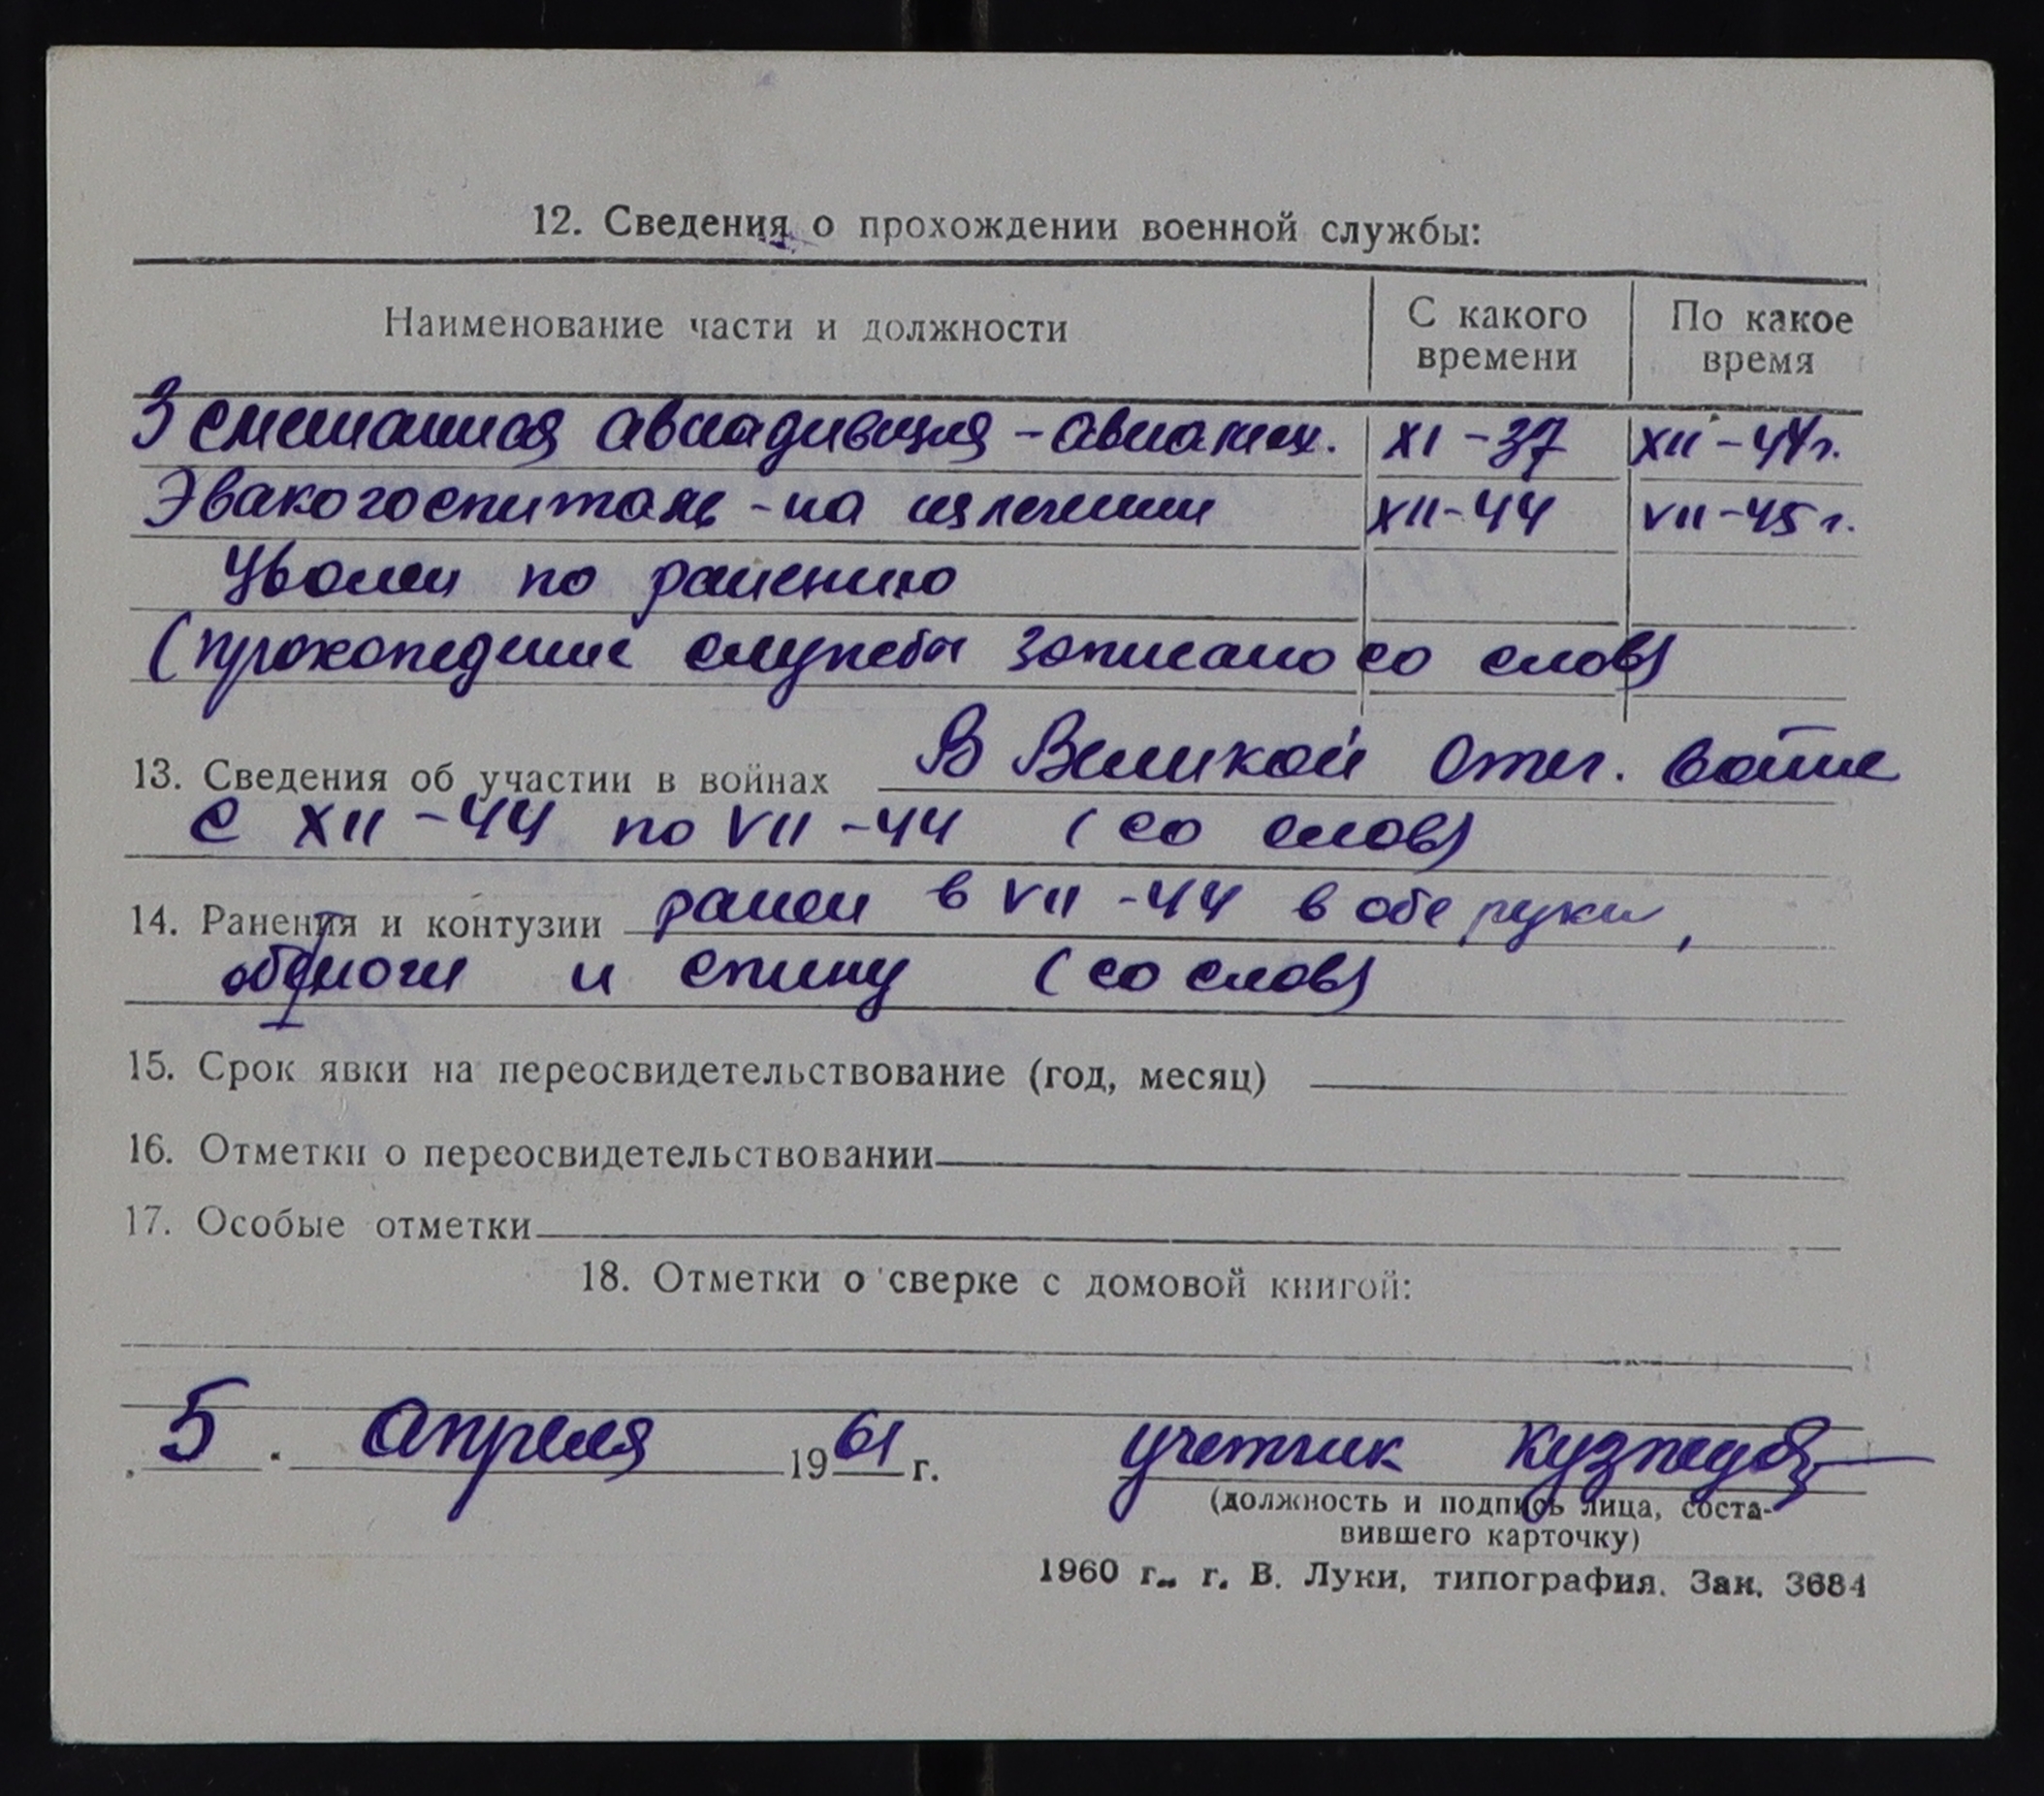 12. Сведения о прохождении военной службы:
Наименование части и должности
С какого времени
По какое время
3 смешанная авиадивизия - авиамех. XI - 37 XII - 44 г.
Эвакогоспиталь - на излечении XII - 44 VII - 45 г.
Уволен по ранению
(прохождение службы записано со слов)
13. Сведения об участии в войнах В Великой Отеч. войне
с XII - 44 по VII - 44 (со слов)
14. Ранения и контузии ранен в VII - 44 в обе руки,
обе ноги и спину (со слов)
15. Срок явки на переосвидетельствование (год, месяц)
16. Отметки о переосвидетельствовании
17. Особые отметки
18. Отметки о сверке с домовой книгой:
„5“ апреля 1961 г. учетчик
(должность и подпись лица, соста-
вившего карточку)
1960 г., г. В. Луки, типография. Зак. 3684